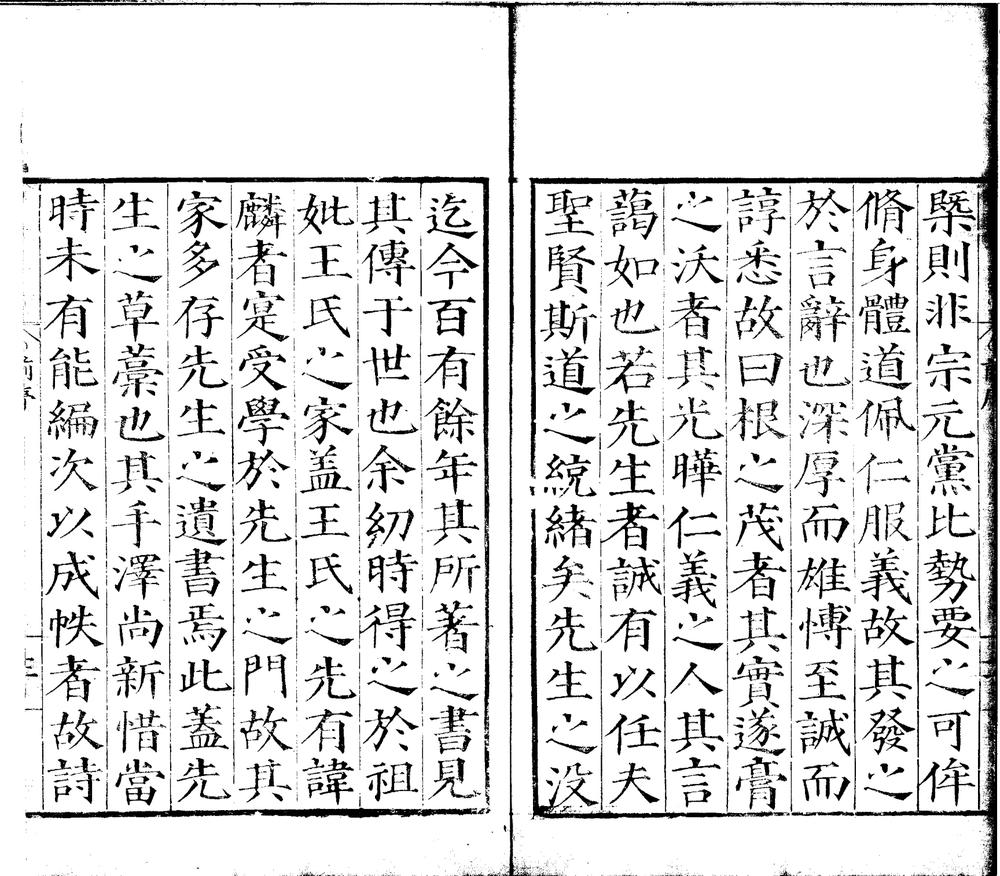 槩則非宗元黨比勢要之可侔
脩身體道佩仁服義故其發之
於言辭也深厚而雄愽至誠而
諄悉故曰根之茂者其實遂膏
之沃者其光曄仁義之人其言
藹如也若先生者誠有以任夫
聖賢斯道之統緒矣先生之没
迄今百有餘年其所著之書見
其傳于世也余幼時得之於祖
妣王氏之家盖王氏之先有諱
麟者寔受學於先生之門故其
家多存先生之遺書焉此蓋先
生之草藁也其手澤尚新惜當
時未有能編次以成帙者故詩